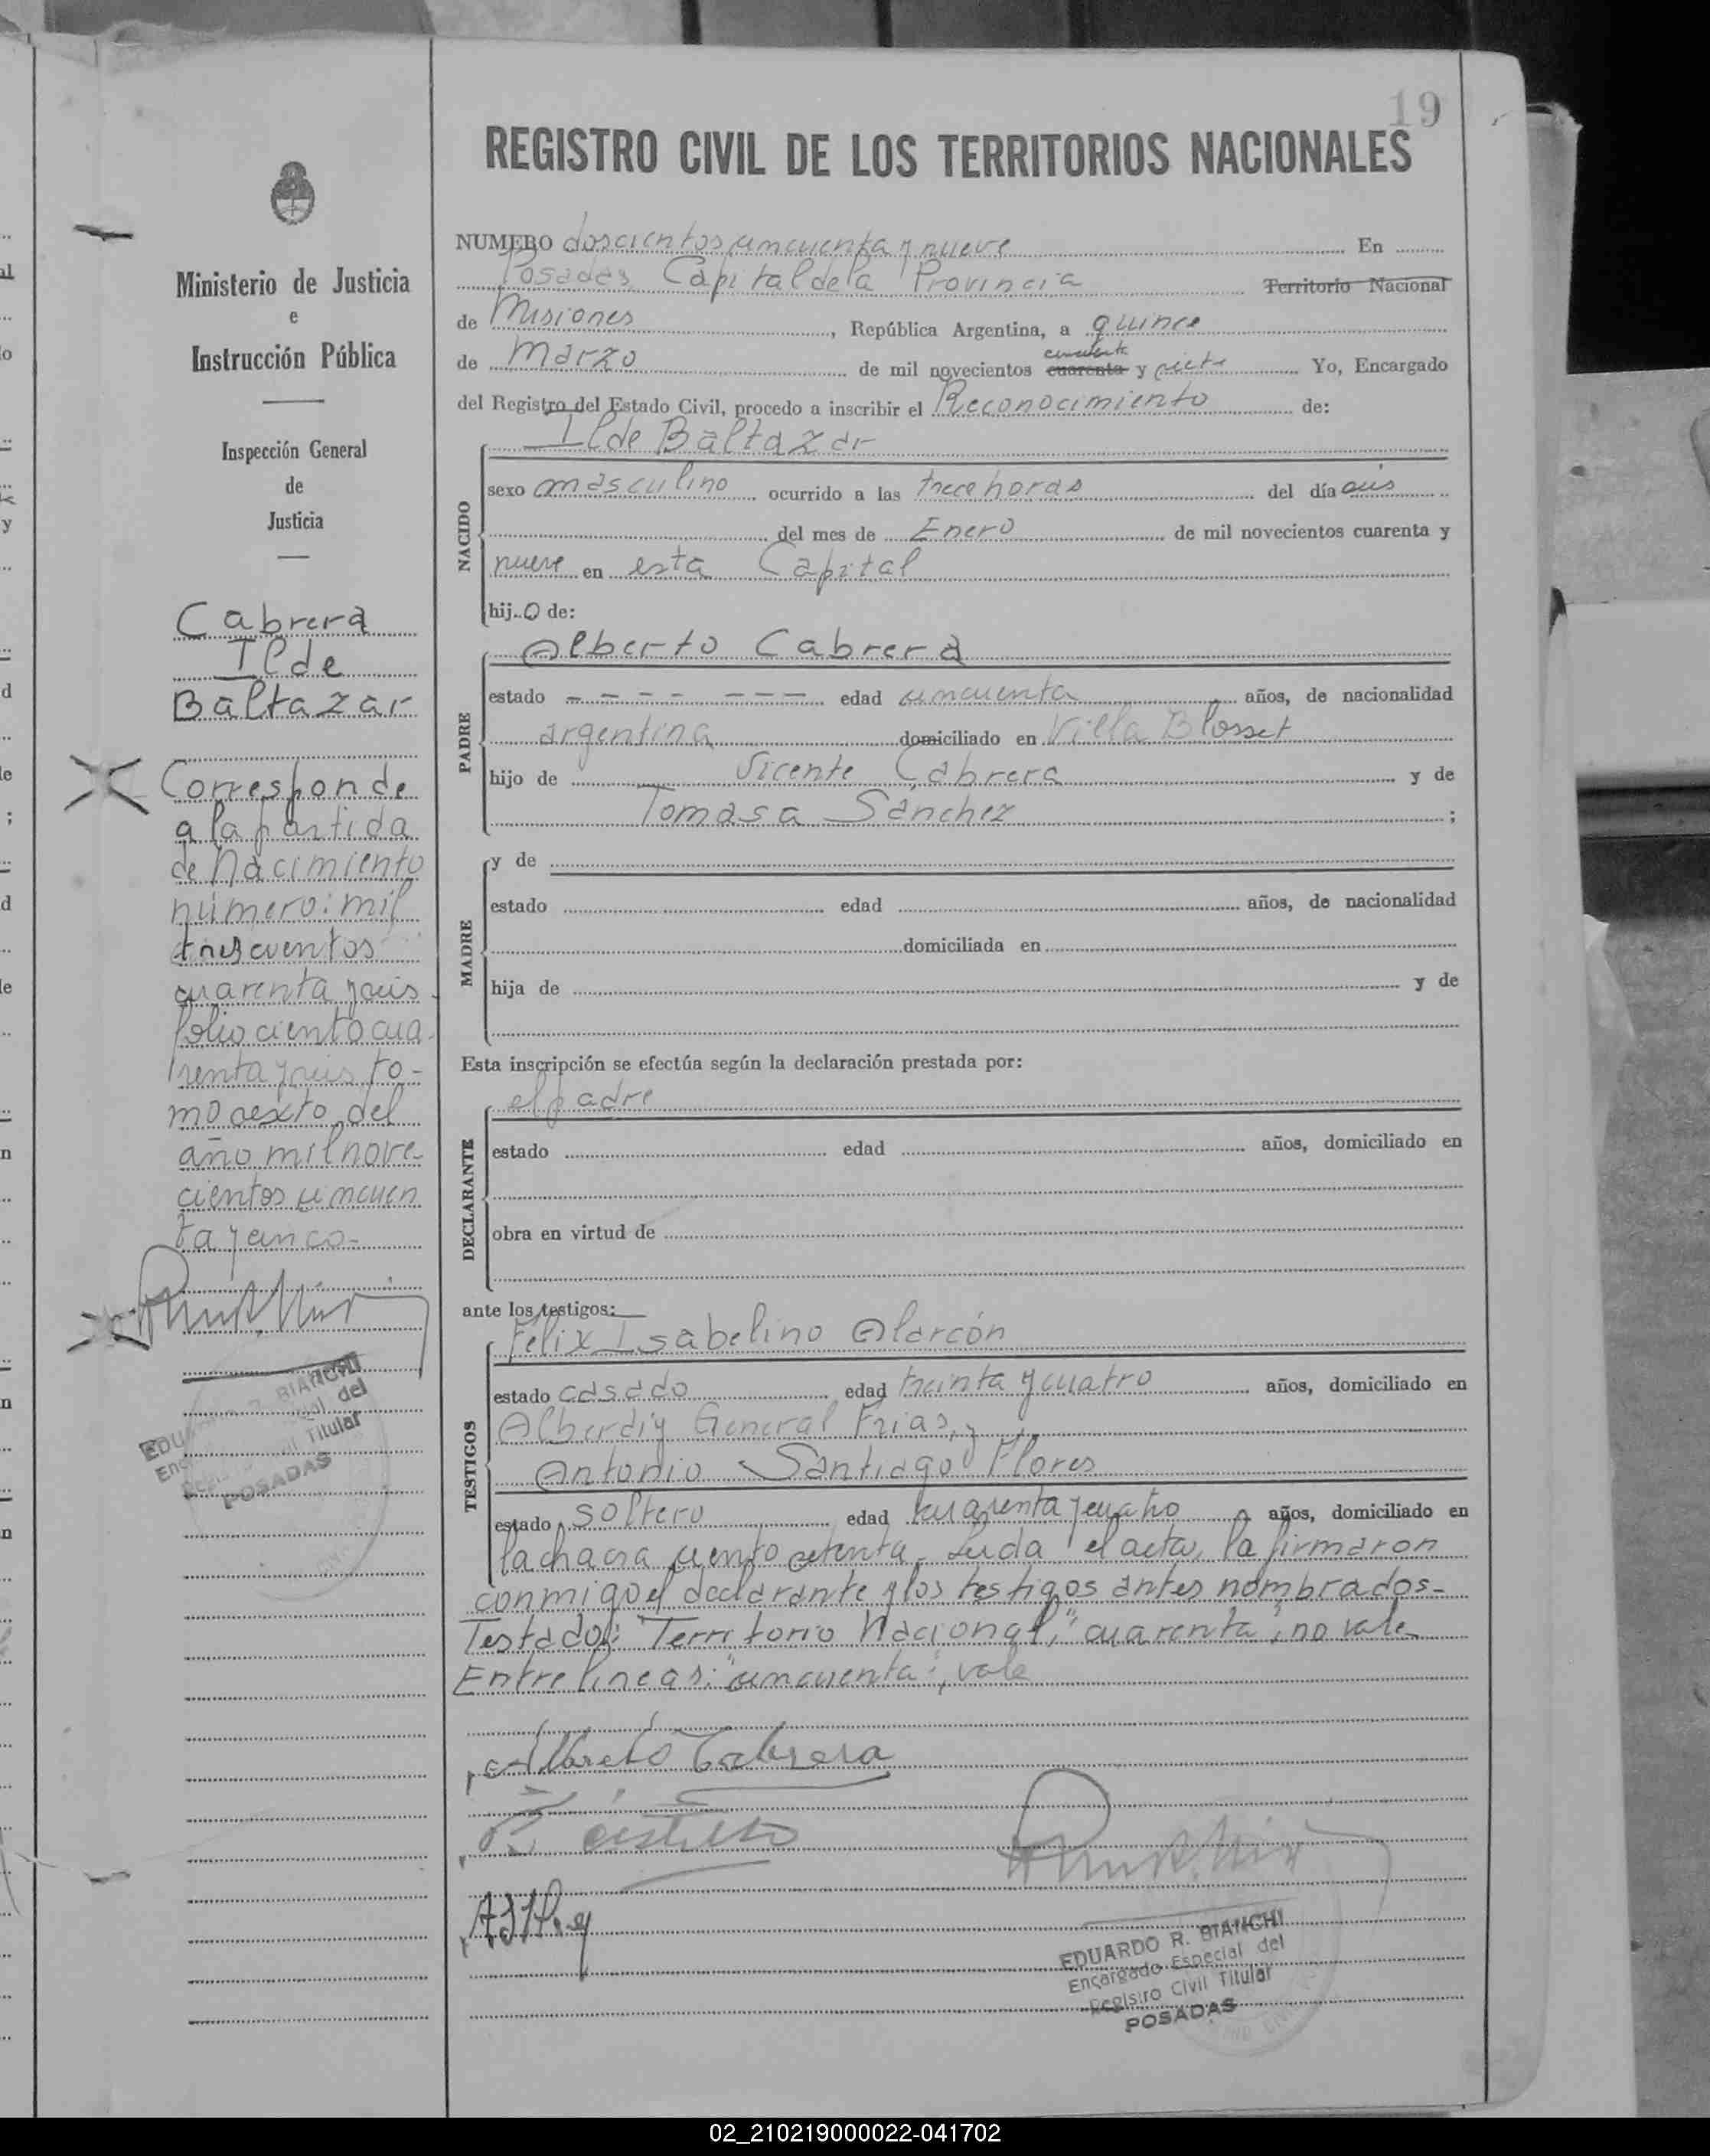 19
REGISTRO CIVIL DE LOS TERRITORIOS NACIONALES
Ministerio de Justicia
e
Instrucción Pública
Inspección General
de
Justicia
Cabrera
Ilde
Baltazar
Corresponde
a la partida
de Nacimiento
número: mil
trescientos
cuarenta y seis
folio ciento cua-
renta y seis to-
mo sexto del
año mil nove-
cientos cincuen
ta y cinco-
EDUARDO R. BIANCHI
Encargado Especial del
Registro Civil Titular
POSADAS
NUMERO doscientos cincuenta y nueve En
Posadas Capital de la Provincia Territorio Nacional
de Misiones, República Argentina, a quince
cincuenta
de Marzo de mil novecientos cuarenta y siete Yo, Encargado
del Registro del Estado Civil, procedo a inscribir el Reconocimiento de:
NACIDO
Ilde Baltazar
sexo masculino ocurrido a las trece horas del día seis
del mes de Enero de mil novecientos cuarenta y
nueve en esta Capital
hij.o de:
PADRE
Alberto Cabrera
estado - - - - - - - edad cincuenta años, de nacionalidad
argentina domiciliado en Villa Blosset
hijo de Vicente Cabrera y de
Tomasa Sánchez ;
MADRE
y de
estado edad años, de nacionalidad
domiciliada en
hija de y de
Esta inscripción se efectúa según la declaración prestada por:
DECLARANTE
el padre
estado edad años, domiciliado en
obra en virtud de
ante los testigos:
TESTIGOS
Félix Isabelino Alarcón
estado casado edad treinta y cuatro años, domiciliado en
Alberdi y General Frias, y
Antonio Santiago Flores
estado soltero edad cuarenta y cuatro años, domiciliado en
la chacra ciento setenta. Leida el acta, la firmaron
conmigo el declarante y los testigos antes nombrados-
Testado: "Territorio Nacional", "cuarenta", no vale
Entre lineas: "cincuenta", vale
Alberto Cabrera
EDUARDO R. BIANCHI
Encargado Especial del
Registro Civil Titular
POSADAS
02_210219000022-041702